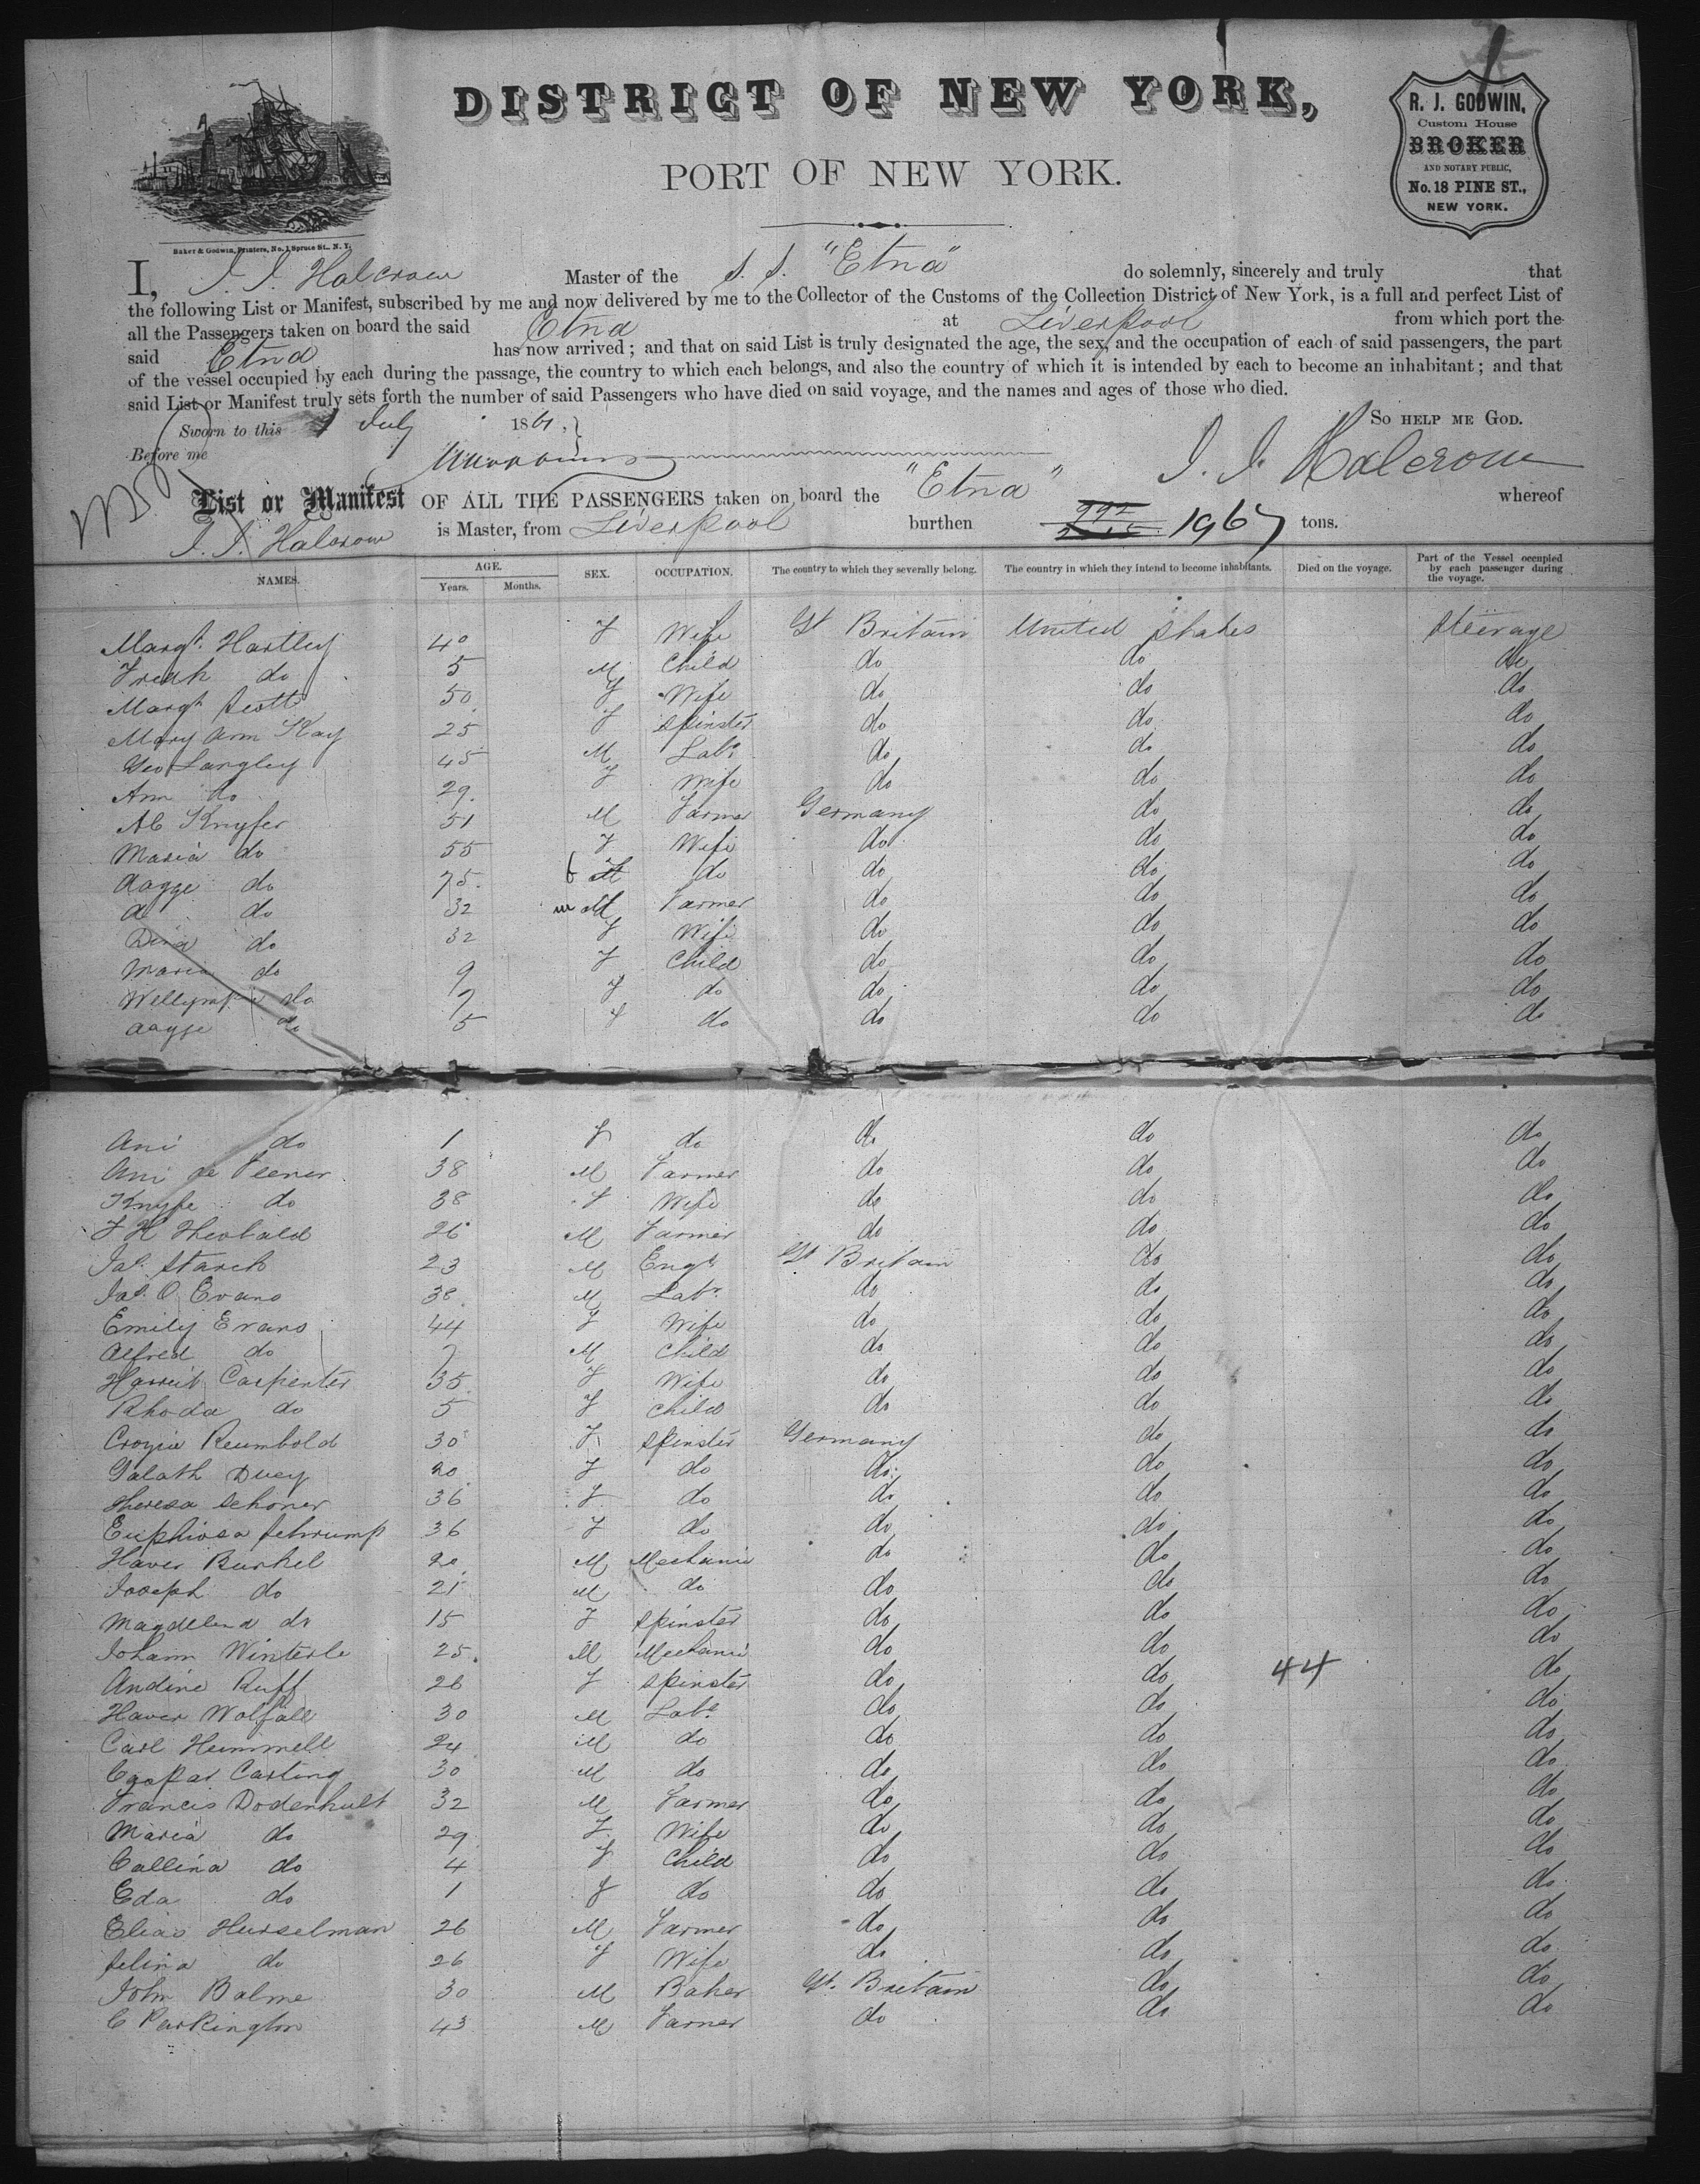 DISTRICT OF NEW YORK,
PORT OF NEW YORK.
R. J. GODWIN,
Custom House
BROKER
AND NOTARY PUBLIC,
No. 18 PINE ST.,
NEW YORK.
Baker & Godwin, Printers, No. 1 Spruce St., N. Y.
I, J. J. Halcrow Master of the S. S. "Etna" do solemnly, sincerely and truly that
the following List or Manifest, subscribed by me and now delivered by me to the Collector of the Customs of the Collection District of New York, is a full and perfect List of
all the Passengers taken on board the said Etna at Liverpool from which port the
said Etna has now arrived; and that on said List is truly designated the age, the sex, and the occupation of each of said passengers, the part
of the vessel occupied by each during the passage, the country to which each belongs, and also the country of which it is intended by each to become an inhabitant; and that
said List or Manifest truly sets forth the number of said Passengers who have died on said voyage, and the names and ages of those who died.
SO HELP ME GOD.
Sworn to this 1 July 186
Before me
J. J. Halcrow
List or Manifest OF ALL THE PASSENGERS taken on board the "Etna" whereof
J. J. Halcrow is Master, from Liverpool burthen 1967 tons.
NAMES. AGE. Years. Months. SEX. OCCUPATION. The country to which they severally belong. The country in which they intend to become inhabitants. Died on the voyage. Part of the Vessel occupied by each passenger during the voyage.
Margt. Hartley 40 F Wife Gt Britain United States Steerage
Fredk do 5 M Child do do do
Margt Scott 50 F Wife do do do
Mary Ann Kay 25 F Spinster do do do
Geo Langley 45 M Labr do do do
Ann do 29 F Wife do do do
Ab Knyfer 51 M Farmer Germany do do
Maria do 55 F Wife do do do
Aagge do 75 f do do do do
A do 32 m Farmer do do do
Dina do 32 F Wife do do do
Maria do 9 F Child do do do
do 7 F do do do do
Aagge do 5 F do do do do
Ani do 1 F do do do do
Ani de Veener 38 M Farmer do do do
Knyfe do 38 F Wife do do do
F H Theobald 26 M Farmer do do do
Jas. Starck 23 M Engr Gt Britain do do
Jas. O Evans 38 M Labr do do do
Emily Evans 44 F Wife do do do
Alfred do 7 M Child do do do
Harriet Carpenter 35 F Wife do do do
Rhoda do 5 F Child do do do
Crozia Reumbold 30 F Spinster Germany do do
Galath Ducy 20 F do do do do
Theresa Schoner 36 F do do do do
Euphiosa Schrump 36 F do do do do
Haver Burkel 20 M Mechanic do do do
Joseph do 21 M do do do do
Magdelena do 15 F Spinster do do do
Johann Winterle 25 M Mechanic do do do
Andine Ruff 26 F Spinster do do 44 do
Haver Wolfall 30 M Labr do do do
Carl Hummell 24 M do do do do
Caspar Carting 30 M do do do do
Francis Dodenhult 32 M Farmer do do do
Maria do 29 F Wife do do do
Callina do 4 F Child do do do
Eda do 1 F do do do do
Elias Husselman 26 M Farmer do do do
Selina do 26 F Wife do do do
John Balme 30 M Baker Gt. Britain do do
C Parkington 43 M Farmer do do do